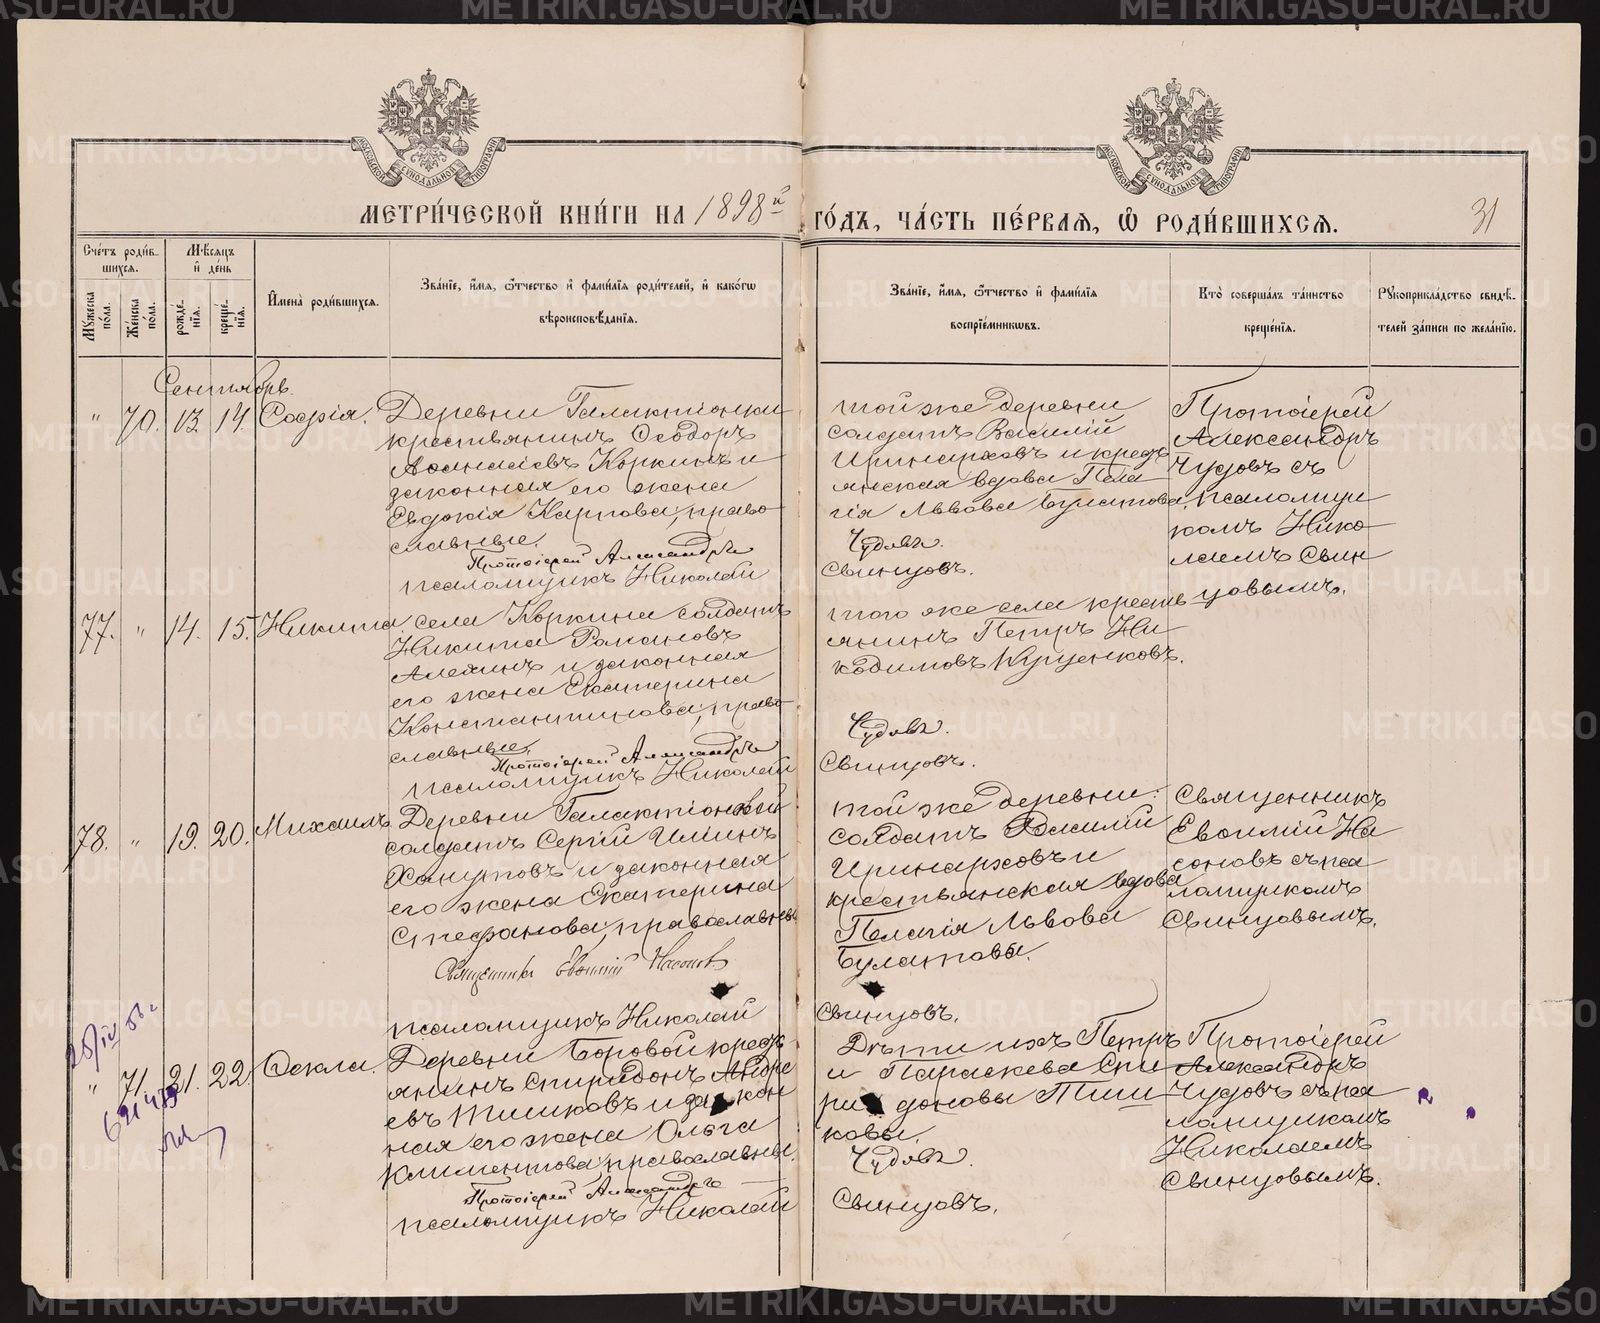 МОСКОВСКОЙ СѴНОДАЛЬНОЙ ТИПОГРАФІИ
МОСКОВСКОЙ СѴНОДАЛЬНОЙ ТИПОГРАФІИ
МЕТРИ́ЧЕСКОЙ КНИ́ГИ НА 1898й ГО́ДЪ, ЧА́СТЬ ПЕ́РВАЯ, Ѡ РОДИ́ВШИХСЯ.
31
Сче́тъ роди́в-
шихся.
Мѣсяцъ
и де́нь
Му́жеска по́ла.
Же́нска по́ла.
рожде́-нія.
креще́-нія.
Имена̀ роди́вшихся.
Зва́ніе, и́мя, ѻ́тчество и фами́лія роди́телей, и како́гѡ
вѣроисповѣ́данія.
Зва́ніе, и́мя, ѻ́тчество и фами́лія
воспріе́мникѡвъ.
Кто̀ соверша́лъ та́инство
креще́нія.
Рукоприкла́дство свидѣ́-
телей за́писи по жела́нію.
Сентябрь
" 70. 13. 14. Софія.
Деревни Галактіонки
крестьянинъ Ѳеодоръ
Аѳанасіевъ Коркинъ и
законная его жена
Евдокія Карпова, право
славные.
Протоіерей Александръ
псаломщикъ Николай
той же деревни
солдатъ Василій
Иринарховъ и кресть
янская вдова Пела
гія Львова Булатова.
Чудовъ.
Свинцовъ.
Протоіерей
Александръ
Чудовъ съ
псаломщи
комъ Нико
лаемъ Свин
цовымъ.
77. " 14. 15. Никита.
села Коркина солдатъ
Никита Романовъ
Алехинъ и законная
его жена Екатерина
Константинова, право
славные.
Протоіерей Александръ
псаломщикъ Николай
того же села кресть
янинъ Петръ Ни
кодимовъ Куценковъ.
Чудовъ.
Свинцовъ.
78. " 19. 20. Михаилъ.
Деревни Галактіонки
солдатъ Сергій Иліинъ
Хомутовъ и законная
его жена Екатерина
Стефанова, православные
Священникъ Евѳимій Насоновъ
псаломщикъ Николай
той же деревни
солдатъ Василій
Иринарховъ и
крестьянская вдова
Пелагія Львова
Булатова.
Свинцовъ.
Священникъ
Евѳимій На
соновъ съ пса
ломщикомъ
Свинцовымъ.
" 71. 21. 22. Ѳекла.
Деревни Боровой кресть
янинъ Спиридонъ Андре
евъ Тишковъ и закон
ная его жена Ольга
Климентова, православные.
Протоіерей Александръ
псаломщикъ Николай
Дѣти ихъ Петръ
и Параскева Спи
ри доновы Тиш
ковы.
Чудовъ.
Свинцовъ.
Протоіерей
Александръ
Чудовъ съ пса
ломщикомъ
Николаемъ
Свинцовымъ.
METRIKI.GASO-URAL.RU